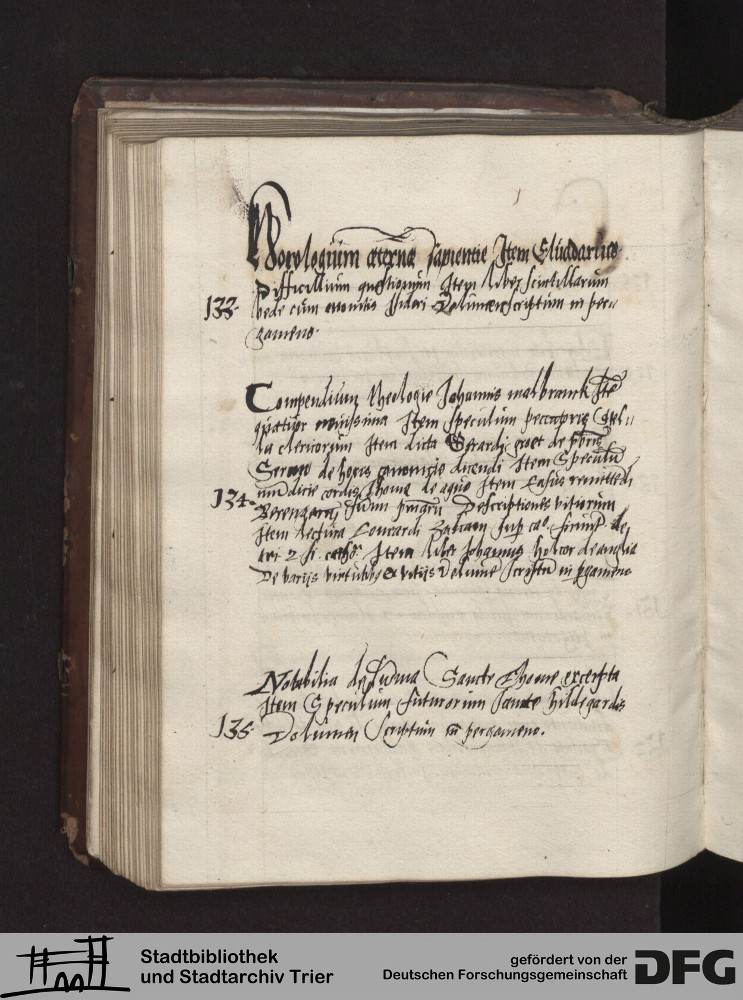 Horologium æternæ sapientie Item Eluci darius
Difficillium questionum Item liber scintillarum
133. bede cum Isidori Volumen scriptum in per-
gameno.
Compendium theologie Johannis malbranck Ite
quatuor novissima Item speculum peccatoris
clericorum Item dicta Gerardi groet de
Sermo de horis canonicis dicendi Item Speculu
134. mundicie cordis Thome de aquo Item Casus remittedi
Berengarij Descriptiones vitiorum
Item lectura Leonardi
tri 2. Item liber Johannis holcot de anglia
De varijs virtutibus & vitijs Volume Scriptu in pgameno
Notabilia de Suma Sancte Thome excerpta
Item Speculum futurorum sancte hildegardis
135. Volumen Scriptum in pergameno.
Stadtbibliothek
und Stadtarchiv Trier
gefördert von der
Deutschen Forschungsgemeinschaft
DFG